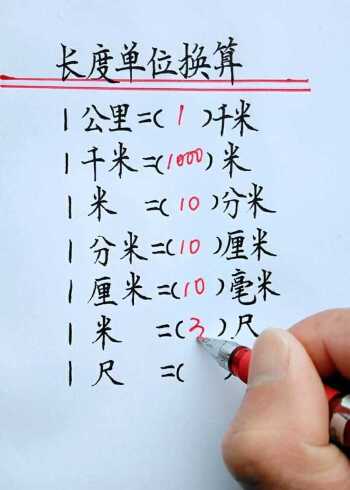 长度单位换算
1公里=(1)千米
1千米=(1000)米
1米=(10)分米
1分米=(10)厘米
1厘米=(10)毫米
1米=(3)尺
1尺=( )